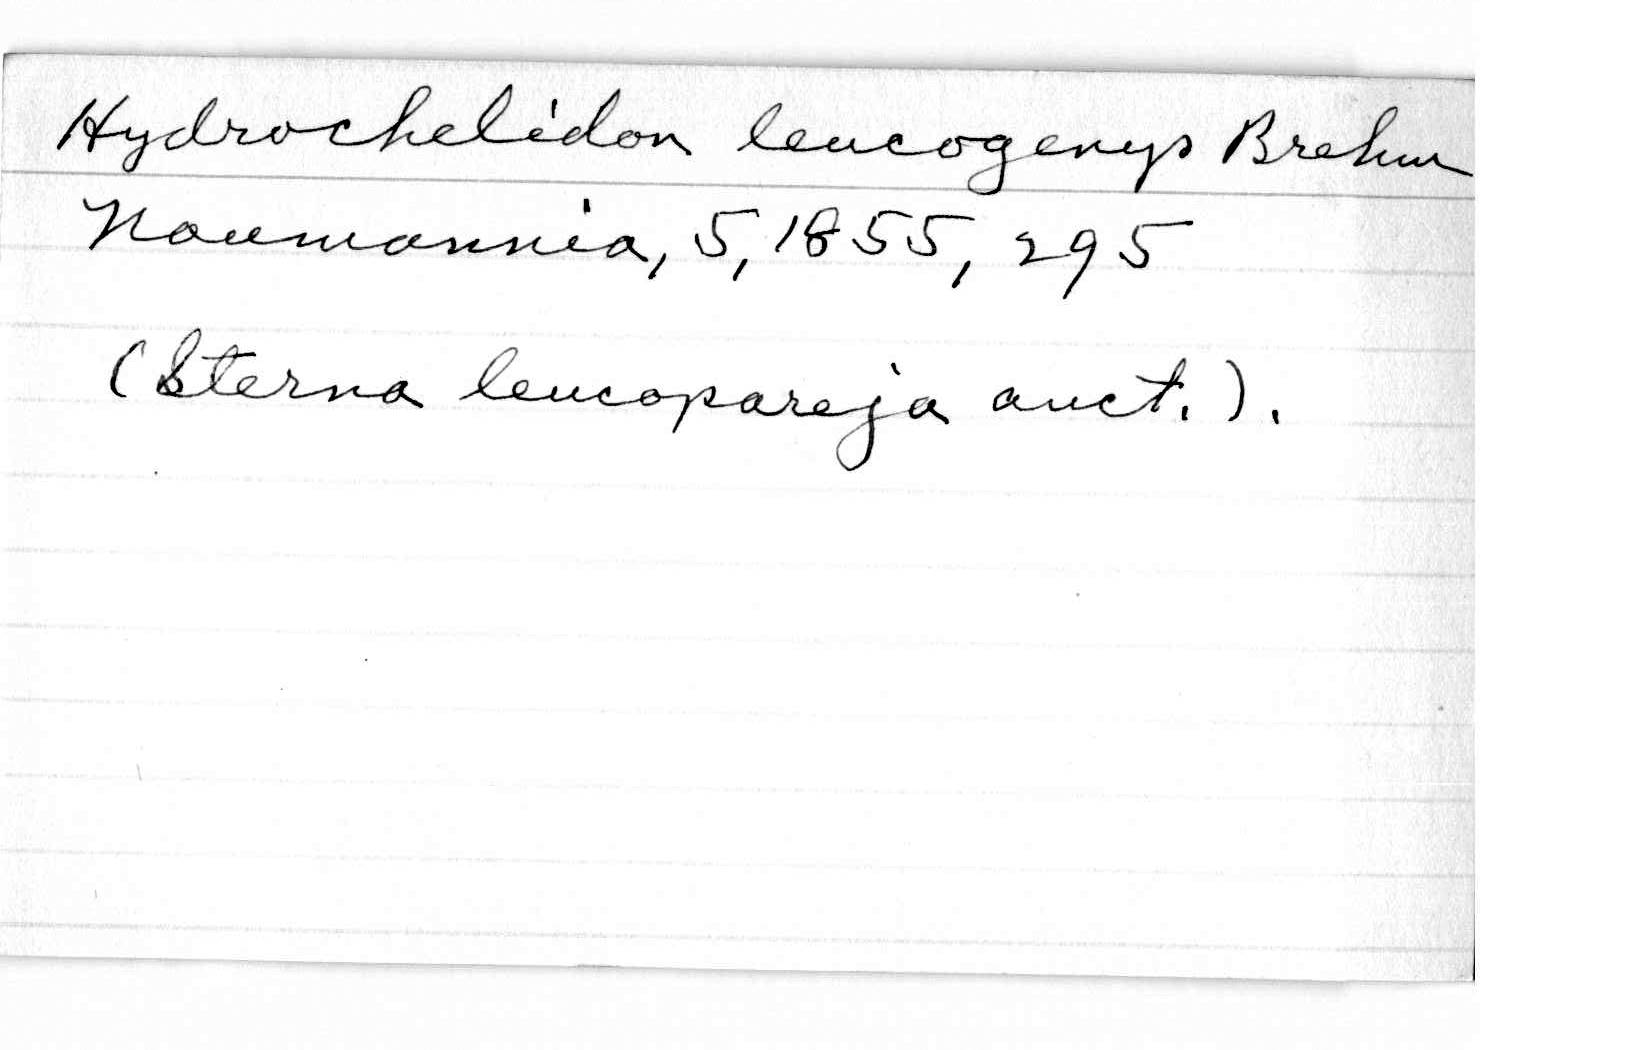 Hydrochelidon leucogenys Brehm
Naumannia, 5, 1855, 295
(Sterna leucopareja auct.).